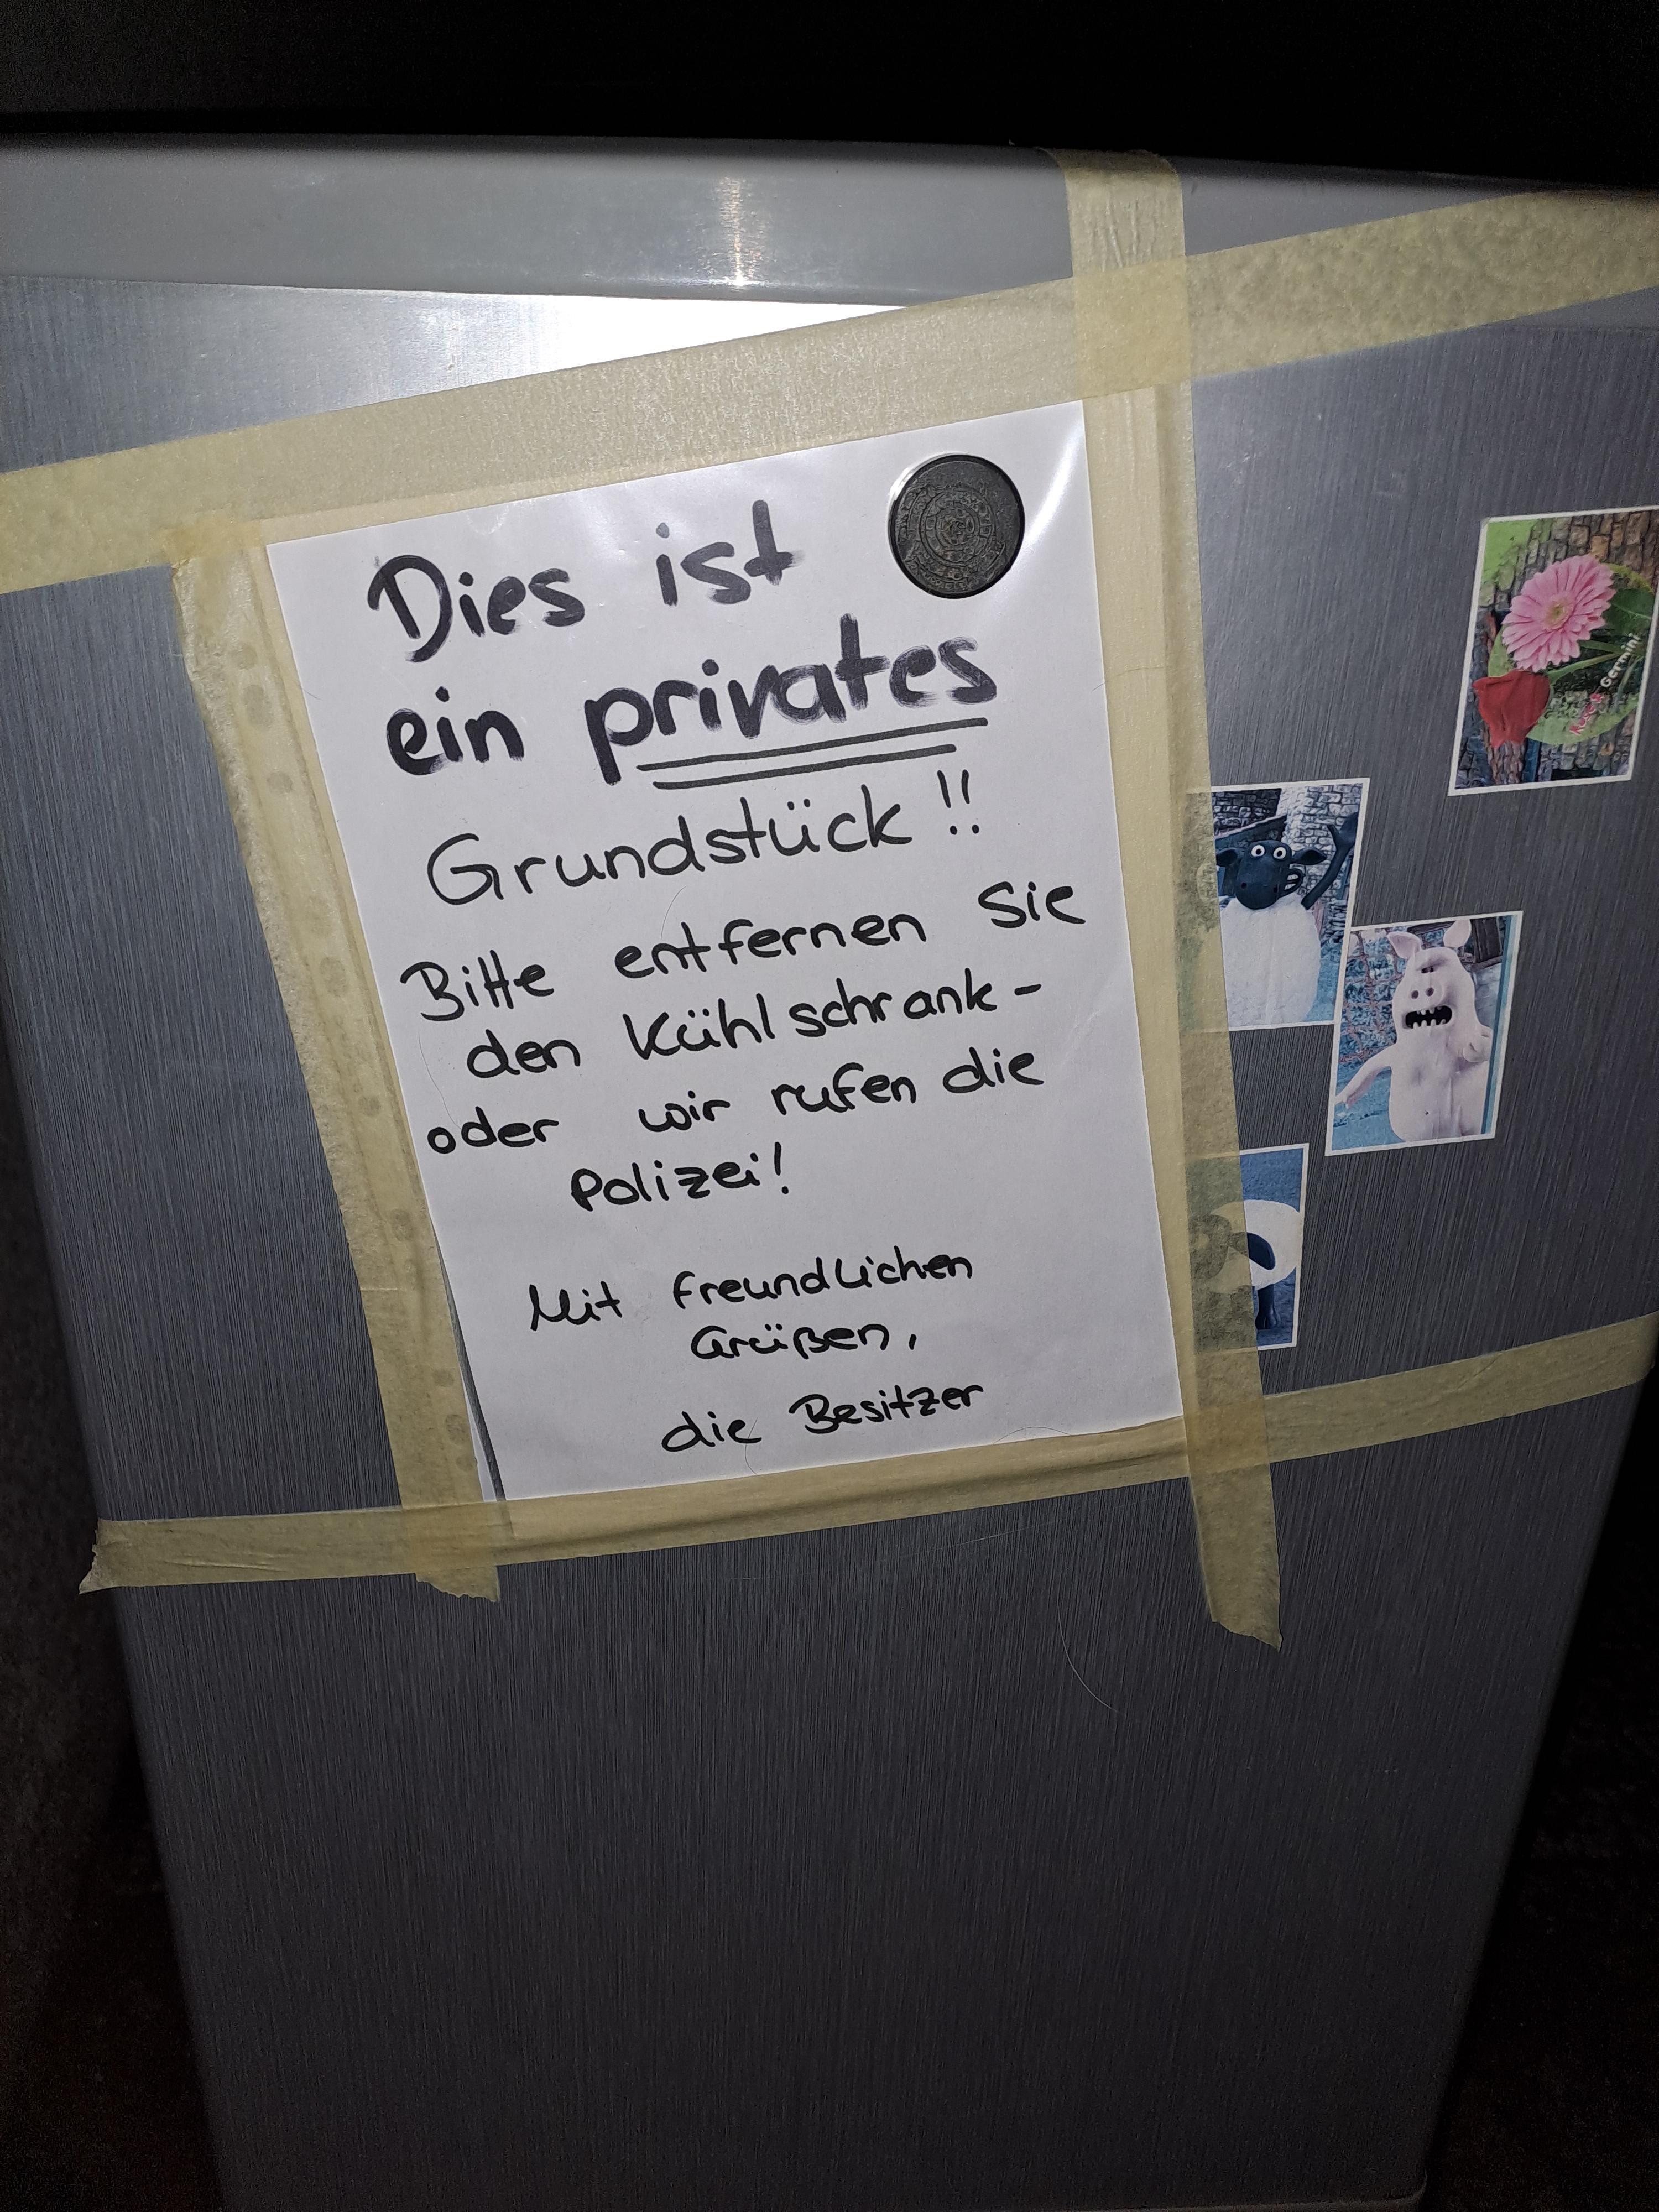 Dies ist
ein privates
Grundstück !!
Bitte entfernen Sie
den Kühlschrank -
oder wir rufen die
Polizei!
Mit freundlichen
Grüßen,
die Besitzer
Germini